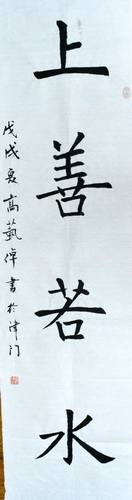 上善若水
戊戌夏高艺倬書於津门